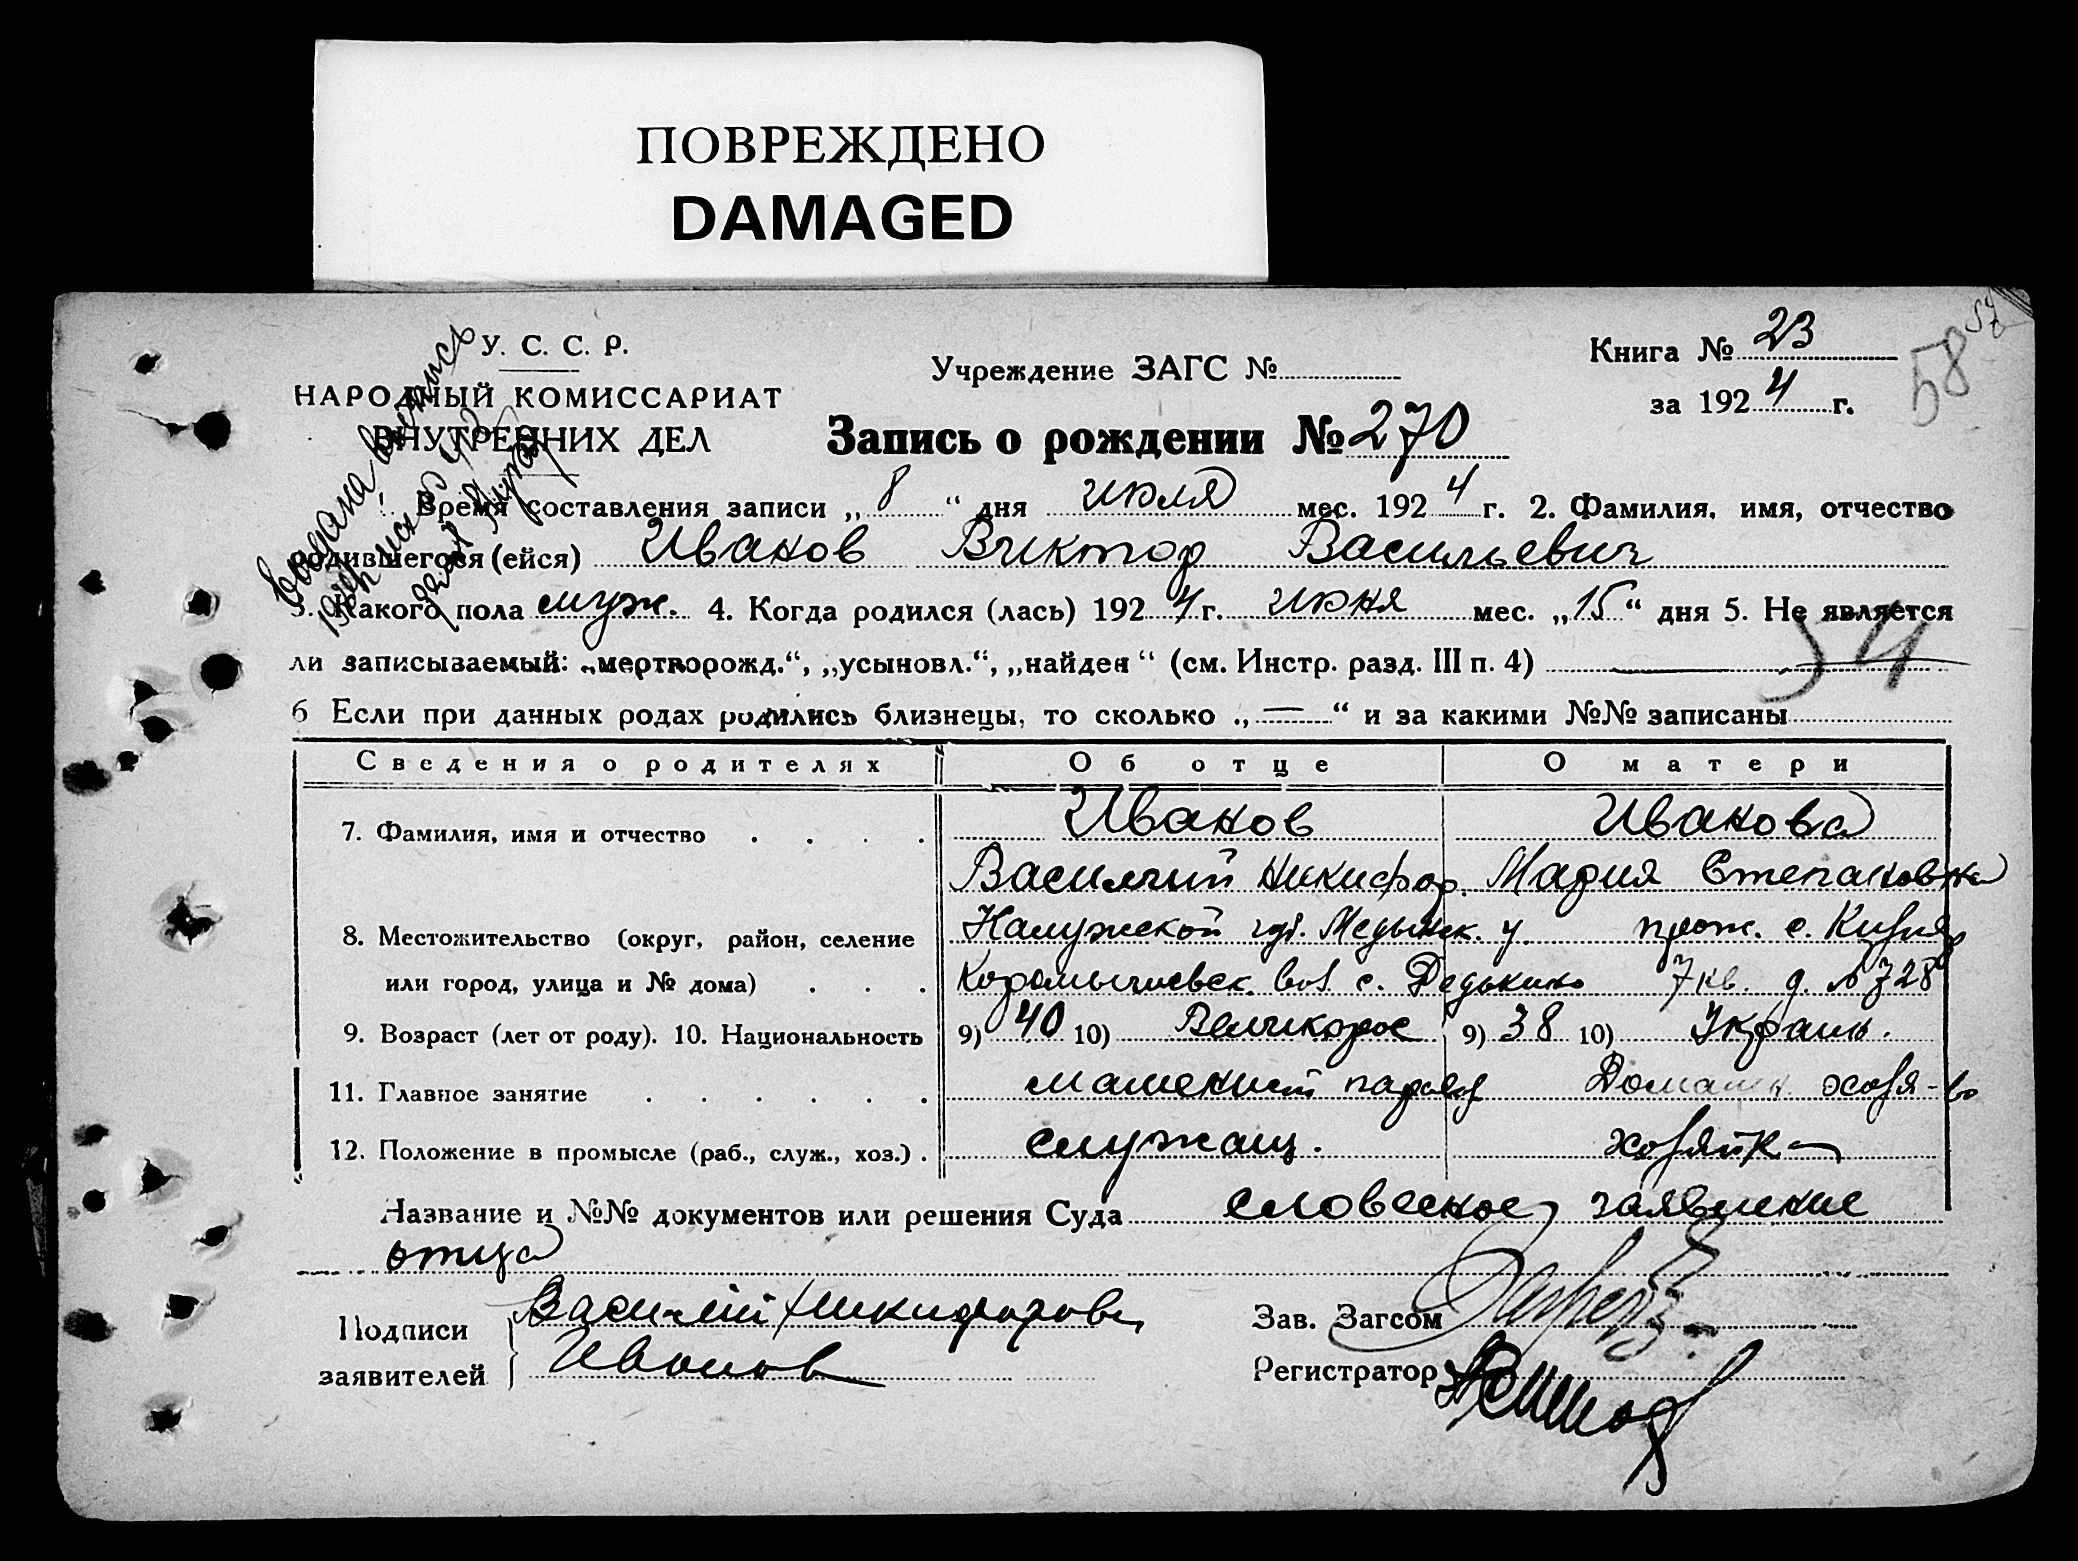 ПОВРЕЖДЕНО
DAMAGED
У. С. С. Р.
НАРОДНЫЙ КОМИССАРИАТ
ВНУТРЕННИХ ДЕЛ
Выдана выпись
Учреждение ЗАГС №
Книга № 23
за 1924 г.
58
Запись о рождении № 270
Время составления записи „8“ дня июля мес. 1924 г. 2. Фамилия, имя, отчество
родившегося (ейся) Иванов Виктор Васильевич
3. Какого пола муж. 4. Когда родился (лась) 1924 г. июня мес. „15“ дня 5. Не является
ли записываемый: „мертворожд.“, „усыновл.“, „найден“ (см. Инстр. разд. III п. 4) —
54
6 Если при данных родах родились близнецы, то сколько „—“ и за какими №№ записаны
Сведения о родителях Об отце О матери
7. Фамилия, имя и отчество . . . . Иванов Иванова
Василий Никифор. Мария Степановна
8. Местожительство (округ, район, селение Калужской губ. Медынск. у прож. с.
или город, улица и № дома) . . . вол. с. Дедькино 7 кв. д. № 328
9. Возраст (лет от роду). 10. Национальность 9) 40 10) Великорос 9) 38 10) Украин.
11. Главное занятие . . . . . . Домашн. хозя-во
12. Положение в промысле (раб., служ., хоз.) . служащ. хозяйка
Название и №№ документов или решения Суда словесное заявление
отца
Подписи заявителей Василий Никифоров
Иванов
Зав. Загсом
Регистратор